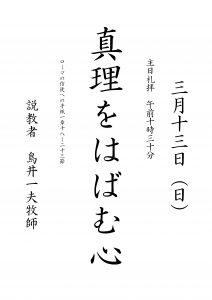 三月十三日（日）
主日礼拝　午前十時三十分
真理をはばむ心
ローマの信徒への手紙一章十八－二十三節
説教者　鳥井一夫牧師